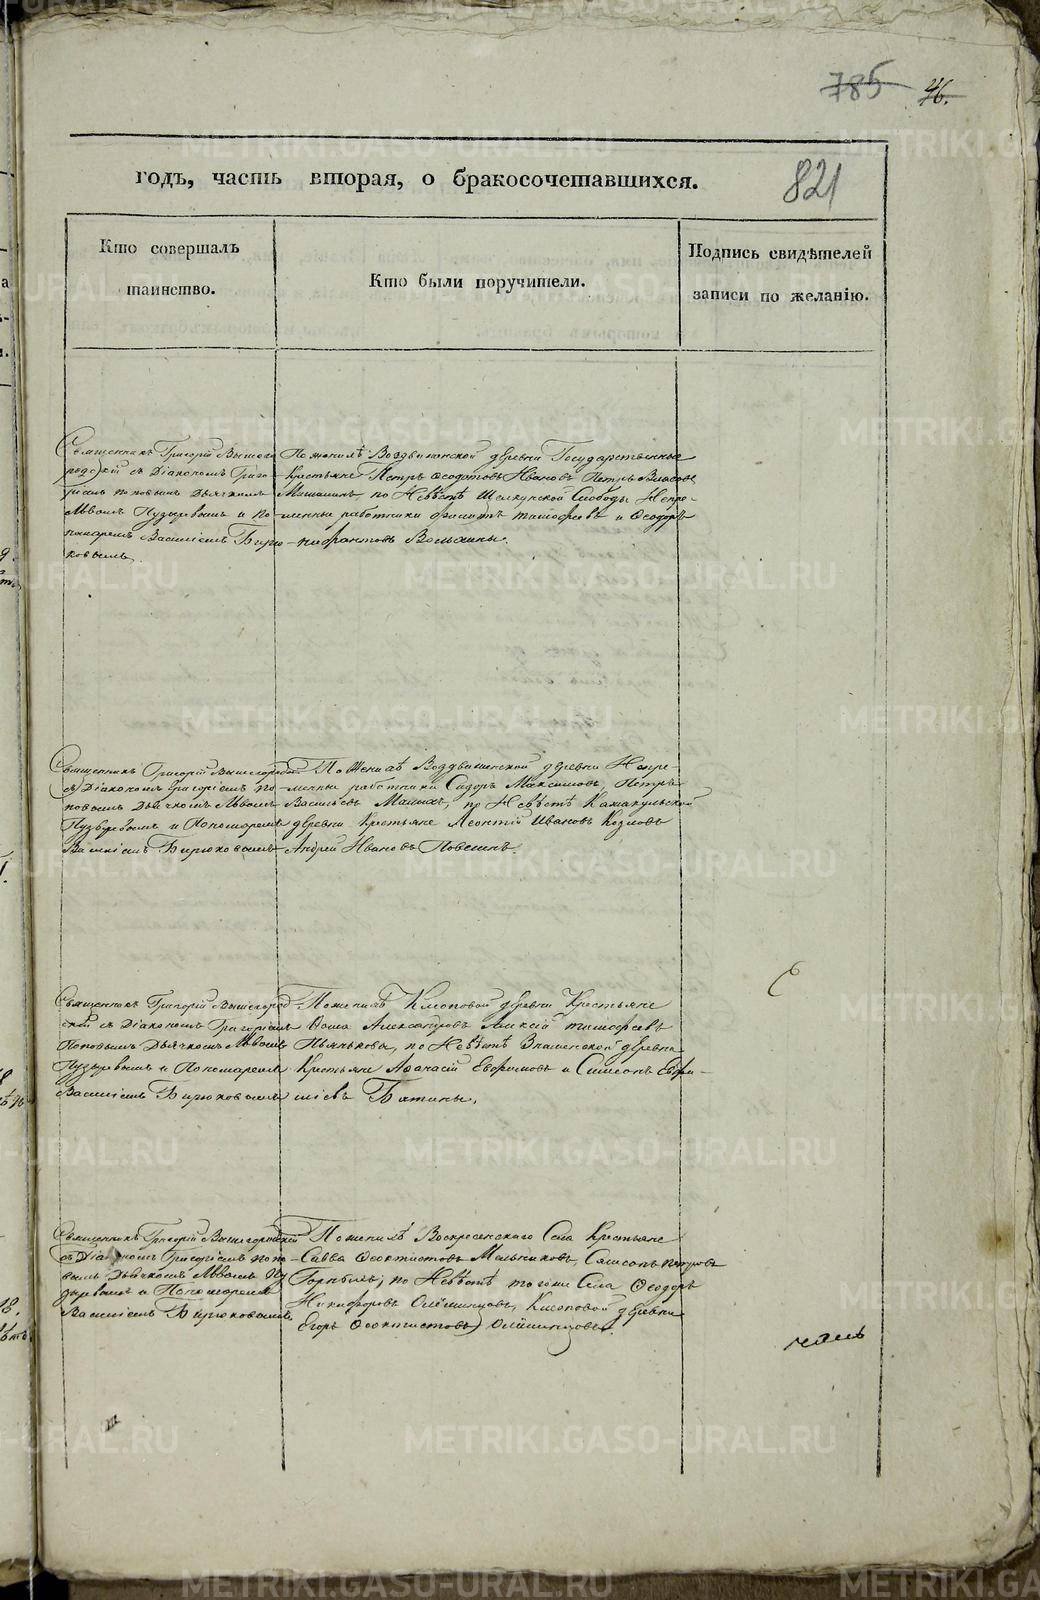 785 76.
821
годъ, часть вторая, о бракосочетавшихся.
Кто совершалъ таинство.
Кто были поручители.
Подпись свидѣтелей записи по желанію.
Священникъ Григорій Вышего
родскій съ Діакономъ Григо-
ріемъ Поповымъ Дьячкомъ
Львомъ Пузыревымъ и По-
номаремъ Василіемъ Бирю-
ковымъ
По женихѣ Воздвиженской деревни Государственные
крестьяне Петръ Ѳеодотовъ Ивановъ Петръ Власовъ
по Невѣстѣ Шаблунской Слободы Непре-
менные работники Тимофѣевъ и Ѳеодоръ
Священникъ Григорій Вышегородскій
съ Діакономъ Григоріемъ По-
повымъ Дьячкомъ Львомъ
Пузыревымъ и Пономаремъ
Василіемъ Бирюковымъ
По Женихѣ Воздвиженской деревни Непре-
менные работники Сидоръ Максимовъ, Петръ
Васильевъ Малыхъ, по Невѣстѣ
деревни Крестьяне Леонтій Ивановъ Козловъ
Андрей Ивановъ
Священникъ Григорій Вышегород-
скій съ Діакономъ Григоріемъ
Поповымъ Дьячкомъ Львомъ
Пузыревымъ и Пономаремъ
Василіемъ Бирюковымъ
По женихѣ Клоповой деревни Крестьяне
Ѳома Александровъ Алексій Тимофѣевъ
Пьянковы, по Невѣстѣ Знаменской деревни
Крестьяне Аѳанасій Евфремовъ и Симеонъ Евфи-
міевъ
Священникъ Григорій Вышегородскій
съ Діакономъ Григоріемъ Попо-
вымъ Дьячкомъ Львомъ Пу
зыревымъ и Пономаремъ
Василіемъ Бирюковымъ
По женихѣ Воскресенскаго Села Крестьяне
Савва Ѳеоктистовъ Мальчиковъ, Самсонъ Петровъ
по Невѣстѣ того же Села Ѳеодоръ
Никифоровъ Клоповой деревни
Егоръ Ѳеоктистовъ
METRIKI.GASO-URAL.RU